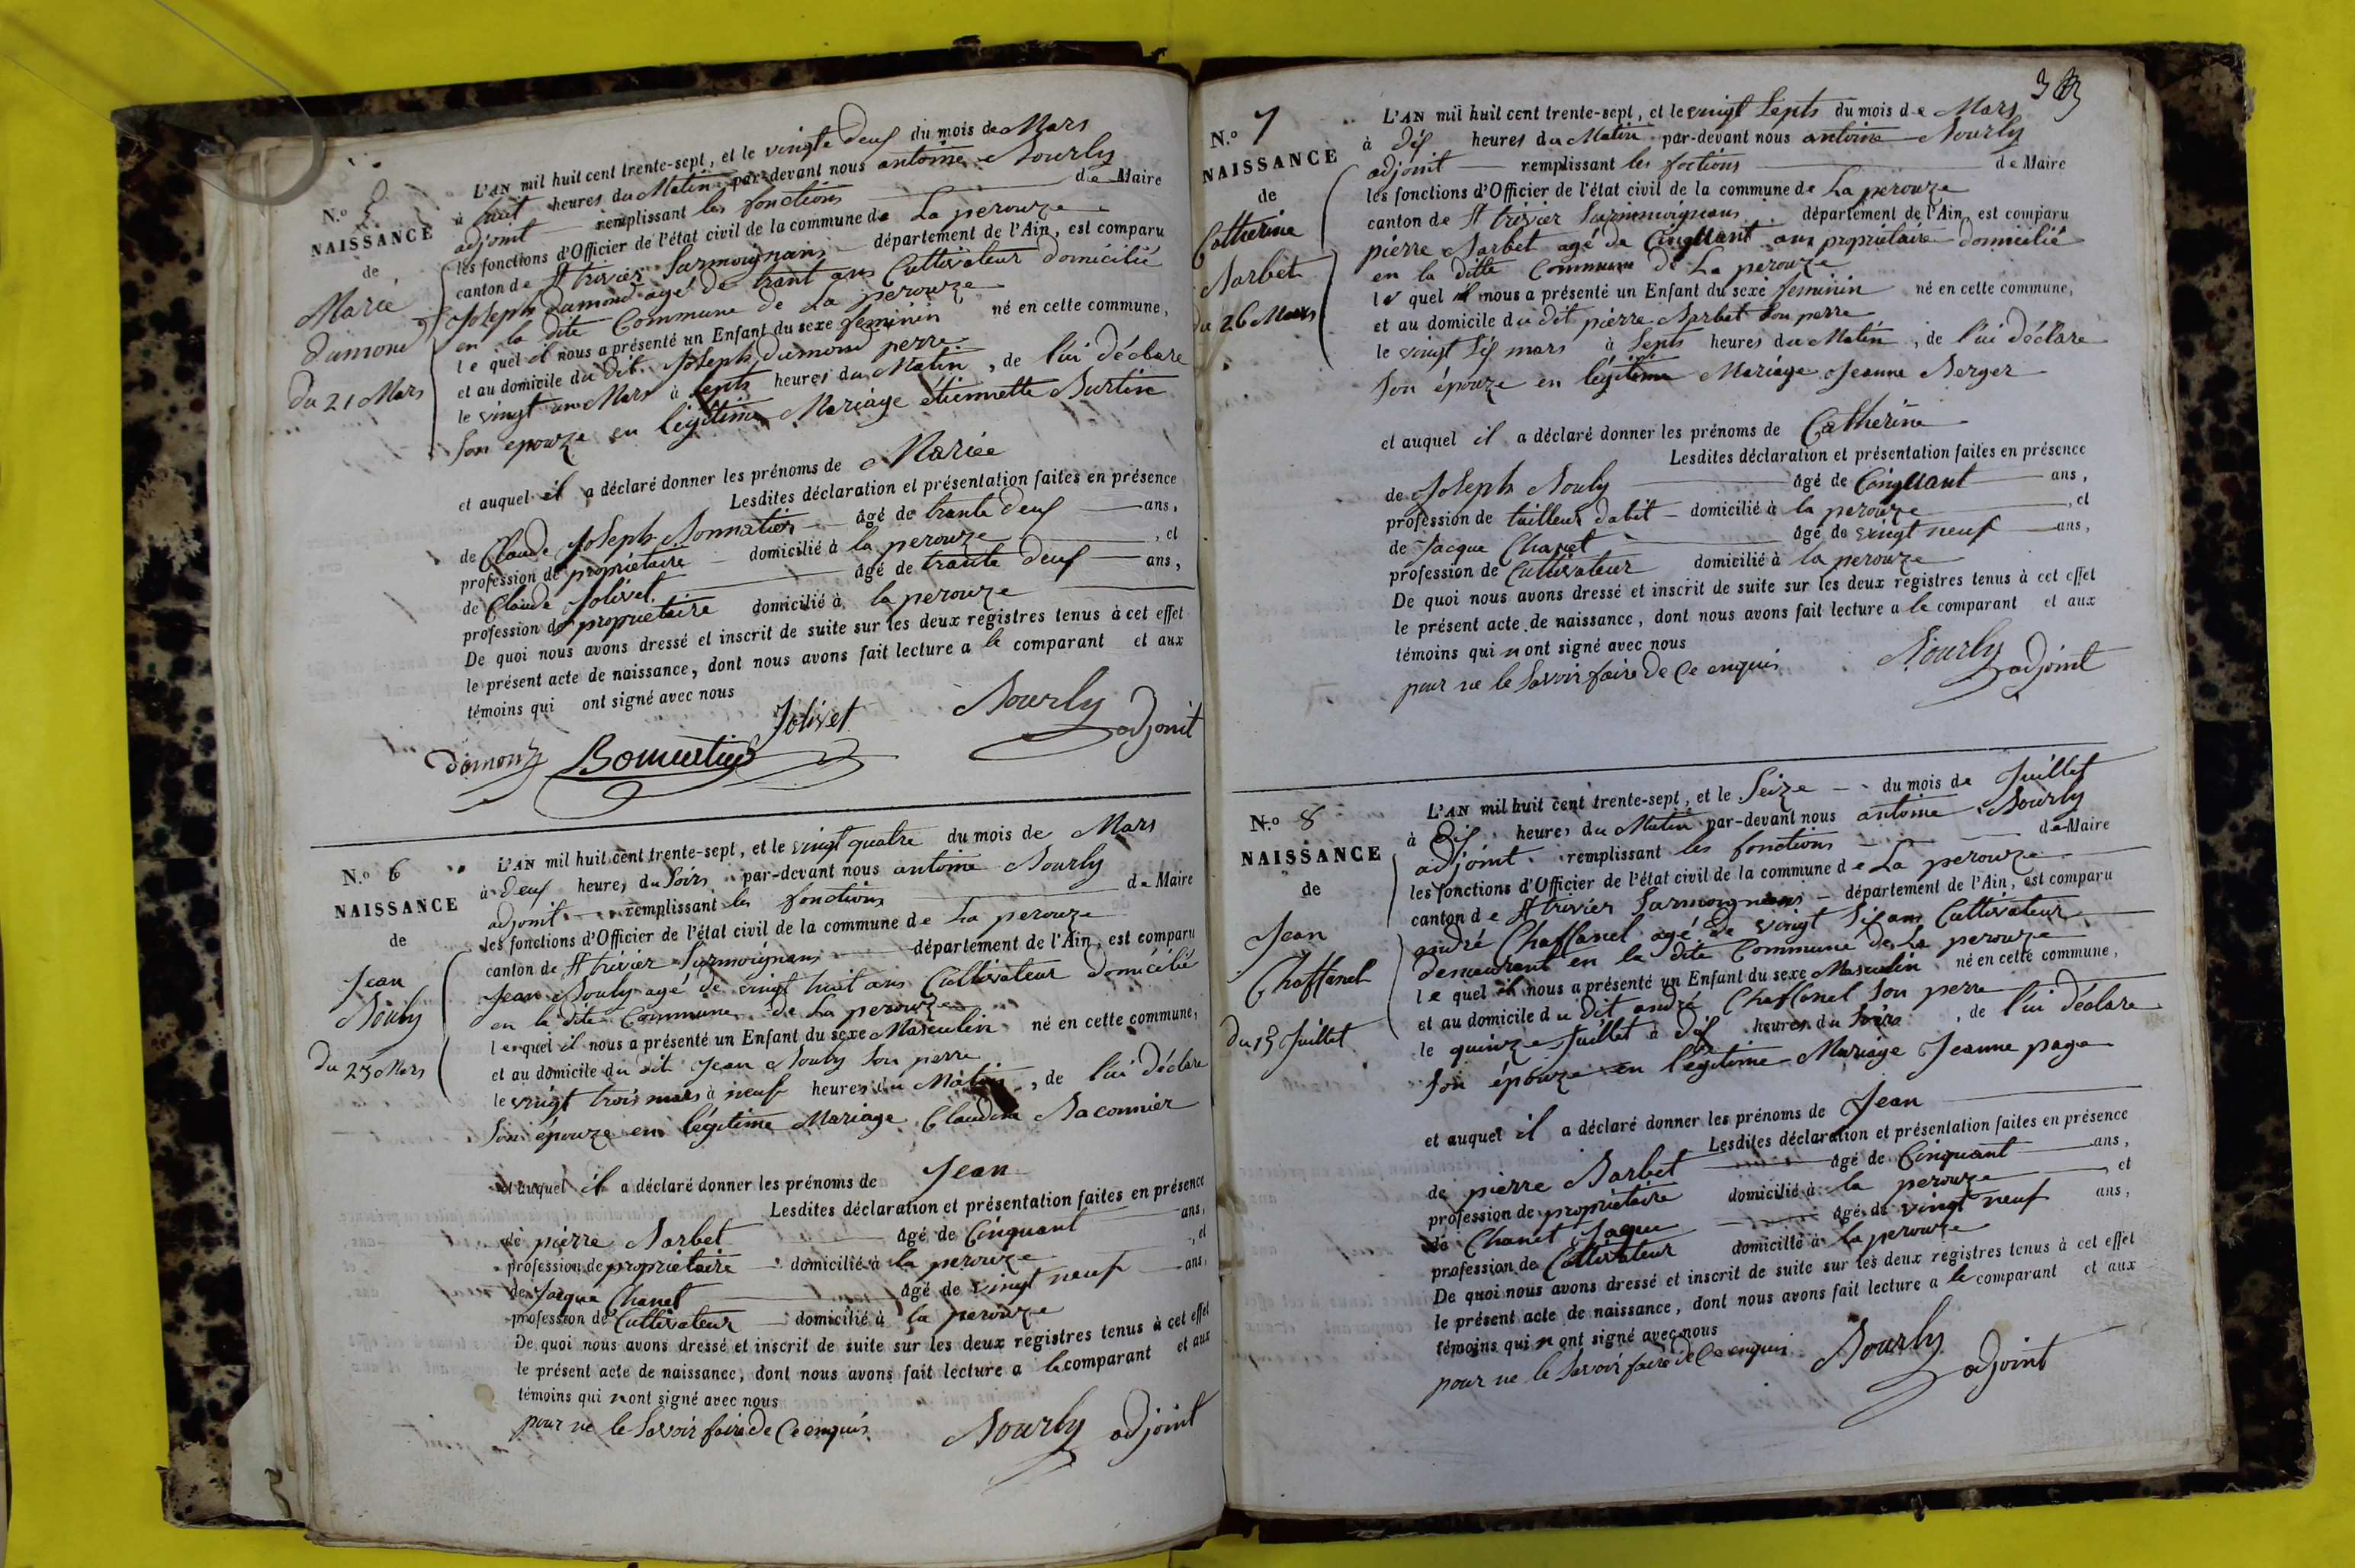 N.º 5
NAISSANCE
de
Marie
dumond
du 21 Mars
L'AN mil huit cent trente-sept, et le vingte deux du mois de Mars
à huit heures du Matin par-devant nous antoine Bourly
adjoint remplissant les fonctions de Maire
les fonctions d'Officier de l'état civil de la commune de La perouze
canton de St trivier Surmoignans département de l'Ain, est comparu
Joseph dumond agé de trant ans Cultivateur domicilié
en la dite Commune de La perouze
le quel il nous a présenté un Enfant du sexe feminin né en cette commune,
et au domicile du dit Joseph dumond perre
le vingt un Mars à septs heures du Matin, de l'ui déclare
Son epouze en légitime Mariage étiennette Burtin
et auquel il a déclaré donner les prénoms de Mariee
Lesdites déclaration et présentation faites en présence
de Claude Joseph Bonnatier âgé de trante deux ans,
profession de propriétaire domicilié à la perouze, et
de Claude Jolivet âgé de trante deux ans,
profession de propriétaire domicilié à la perouze
De quoi nous avons dressé et inscrit de suite sur les deux registres tenus à cet effet
le présent acte de naissance, dont nous avons fait lecture a le comparant et aux
témoins qui ont signé avec nous
Jolivet Bourly
adjoint
N.º 6
NAISSANCE
de
Jean
Bouly
Du 23 Mars
L'AN mil huit cent trente-sept, et le vingt quatre du mois de Mars
à deux heures du Soirs par-devant nous antoine Bourly
adjoint remplissant les fonctions de Maire
les fonctions d'Officier de l'état civil de la commune de La perouze
canton de St trivier Surmoignans département de l'Ain, est comparu
Jean Bouly agé de vingt huit ans Cultivateur domicilié
en la dite Commune de La perouze
le quel il nous a présenté un Enfant du sexe Masculin né en cette commune,
et au domicile du dit Jean Bouly Son perre
le vingt trois mars à neuf heures du Matin, de l'ui déclare
Son épouze en légitime Mariage Claudine Baconnier
et auquel il a déclaré donner les prénoms de Jean
Lesdites déclaration et présentation faites en présence
de pierre Barbet âgé de Cinquant ans,
profession de propriétaire domicilié à la perouze, et
de Jacque Chanet âgé de vingt neuf ans,
profession de Cultivateur domicilié à la perouze
De quoi nous avons dressé et inscrit de suite sur les deux registres tenus à cet effet
le présent acte de naissance, dont nous avons fait lecture a le comparant et aux
témoins qui n ont signé avec nous
pour ne le Savoir faire de Ce enquis
Bourly adjoint
N.º 7
NAISSANCE
de
Catherine
Barbet
du 26 Mars
L'AN mil huit cent trente-sept, et le vingt Septs du mois de Mars
à dix heures du Matin par-devant nous antoine Bourly
adjoint remplissant les foctions de Maire
les fonctions d'Officier de l'état civil de la commune de La perouze
canton de St trivier Surmoignans département de l'Ain, est comparu
pierre Barbet agé de Cinquant ans propriétaire domicilié
en la ditte Commune de La perouze
le quel il nous a présenté un Enfant du sexe feminin né en cette commune,
et au domicile du dit pierre Barbet Son perre
le vingt Six mars à Septs heures du Matin, de l'ui déclare
Son épouze en légitime Mariage Jeanne Berger
et auquel il a déclaré donner les prénoms de Catherine
Lesdites déclaration et présentation faites en présence
de Joseph Bouly âgé de Cinquant ans,
profession de tailleur dabit domicilié à la perouze, et
de Jacque Chanet âgé de vingt neuf ans,
profession de Cultivateur domicilié à la perouze
De quoi nous avons dressé et inscrit de suite sur les deux registres tenus à cet effet
le présent acte de naissance, dont nous avons fait lecture a le comparant et aux
témoins qui n ont signé avec nous
pour ne le Savoir faire de Ce enquis
Bourly
adjoint
N.º 8
NAISSANCE
de
Jean
Chaffanel
Du 15 Juillet
L'AN mil huit cent trente-sept, et le Seize du mois de Juillet
à dix heures du Matin par-devant nous antoine Bourly
adjoint remplissant les fonctions de Maire
les fonctions d'Officier de l'état civil de la commune de La perouze
canton de St trivier Surmoignans département de l'Ain, est comparu
andré Chaffanel agé de vingt Six ans Cultivateur
demeurant en la dite Commune de La perouze
le quel il nous a présenté un Enfant du sexe Masculin né en cette commune,
et au domicile du dit andré Chaffanel Son perre
le quinze Juillet à dix heures du Soirs, de l'ui déclare
Son épouze en légitime Mariage Jeanne page
et auquel il a déclaré donner les prénoms de Jean
Lesdites déclaration et présentation faites en présence
de pierre Barbet âgé de Cinquant ans,
profession de propriétaire domicilié à la perouze, et
de Chanet Jaque âgé de vingt neuf ans,
profession de Cultivateur domicilié à la perouze
De quoi nous avons dressé et inscrit de suite sur les deux registres tenus à cet effet
le présent acte de naissance, dont nous avons fait lecture a le comparant et aux
témoins qui n ont signé avec nous
pour ne le Savoir faire de Ce enquis
Bourly
adjoint